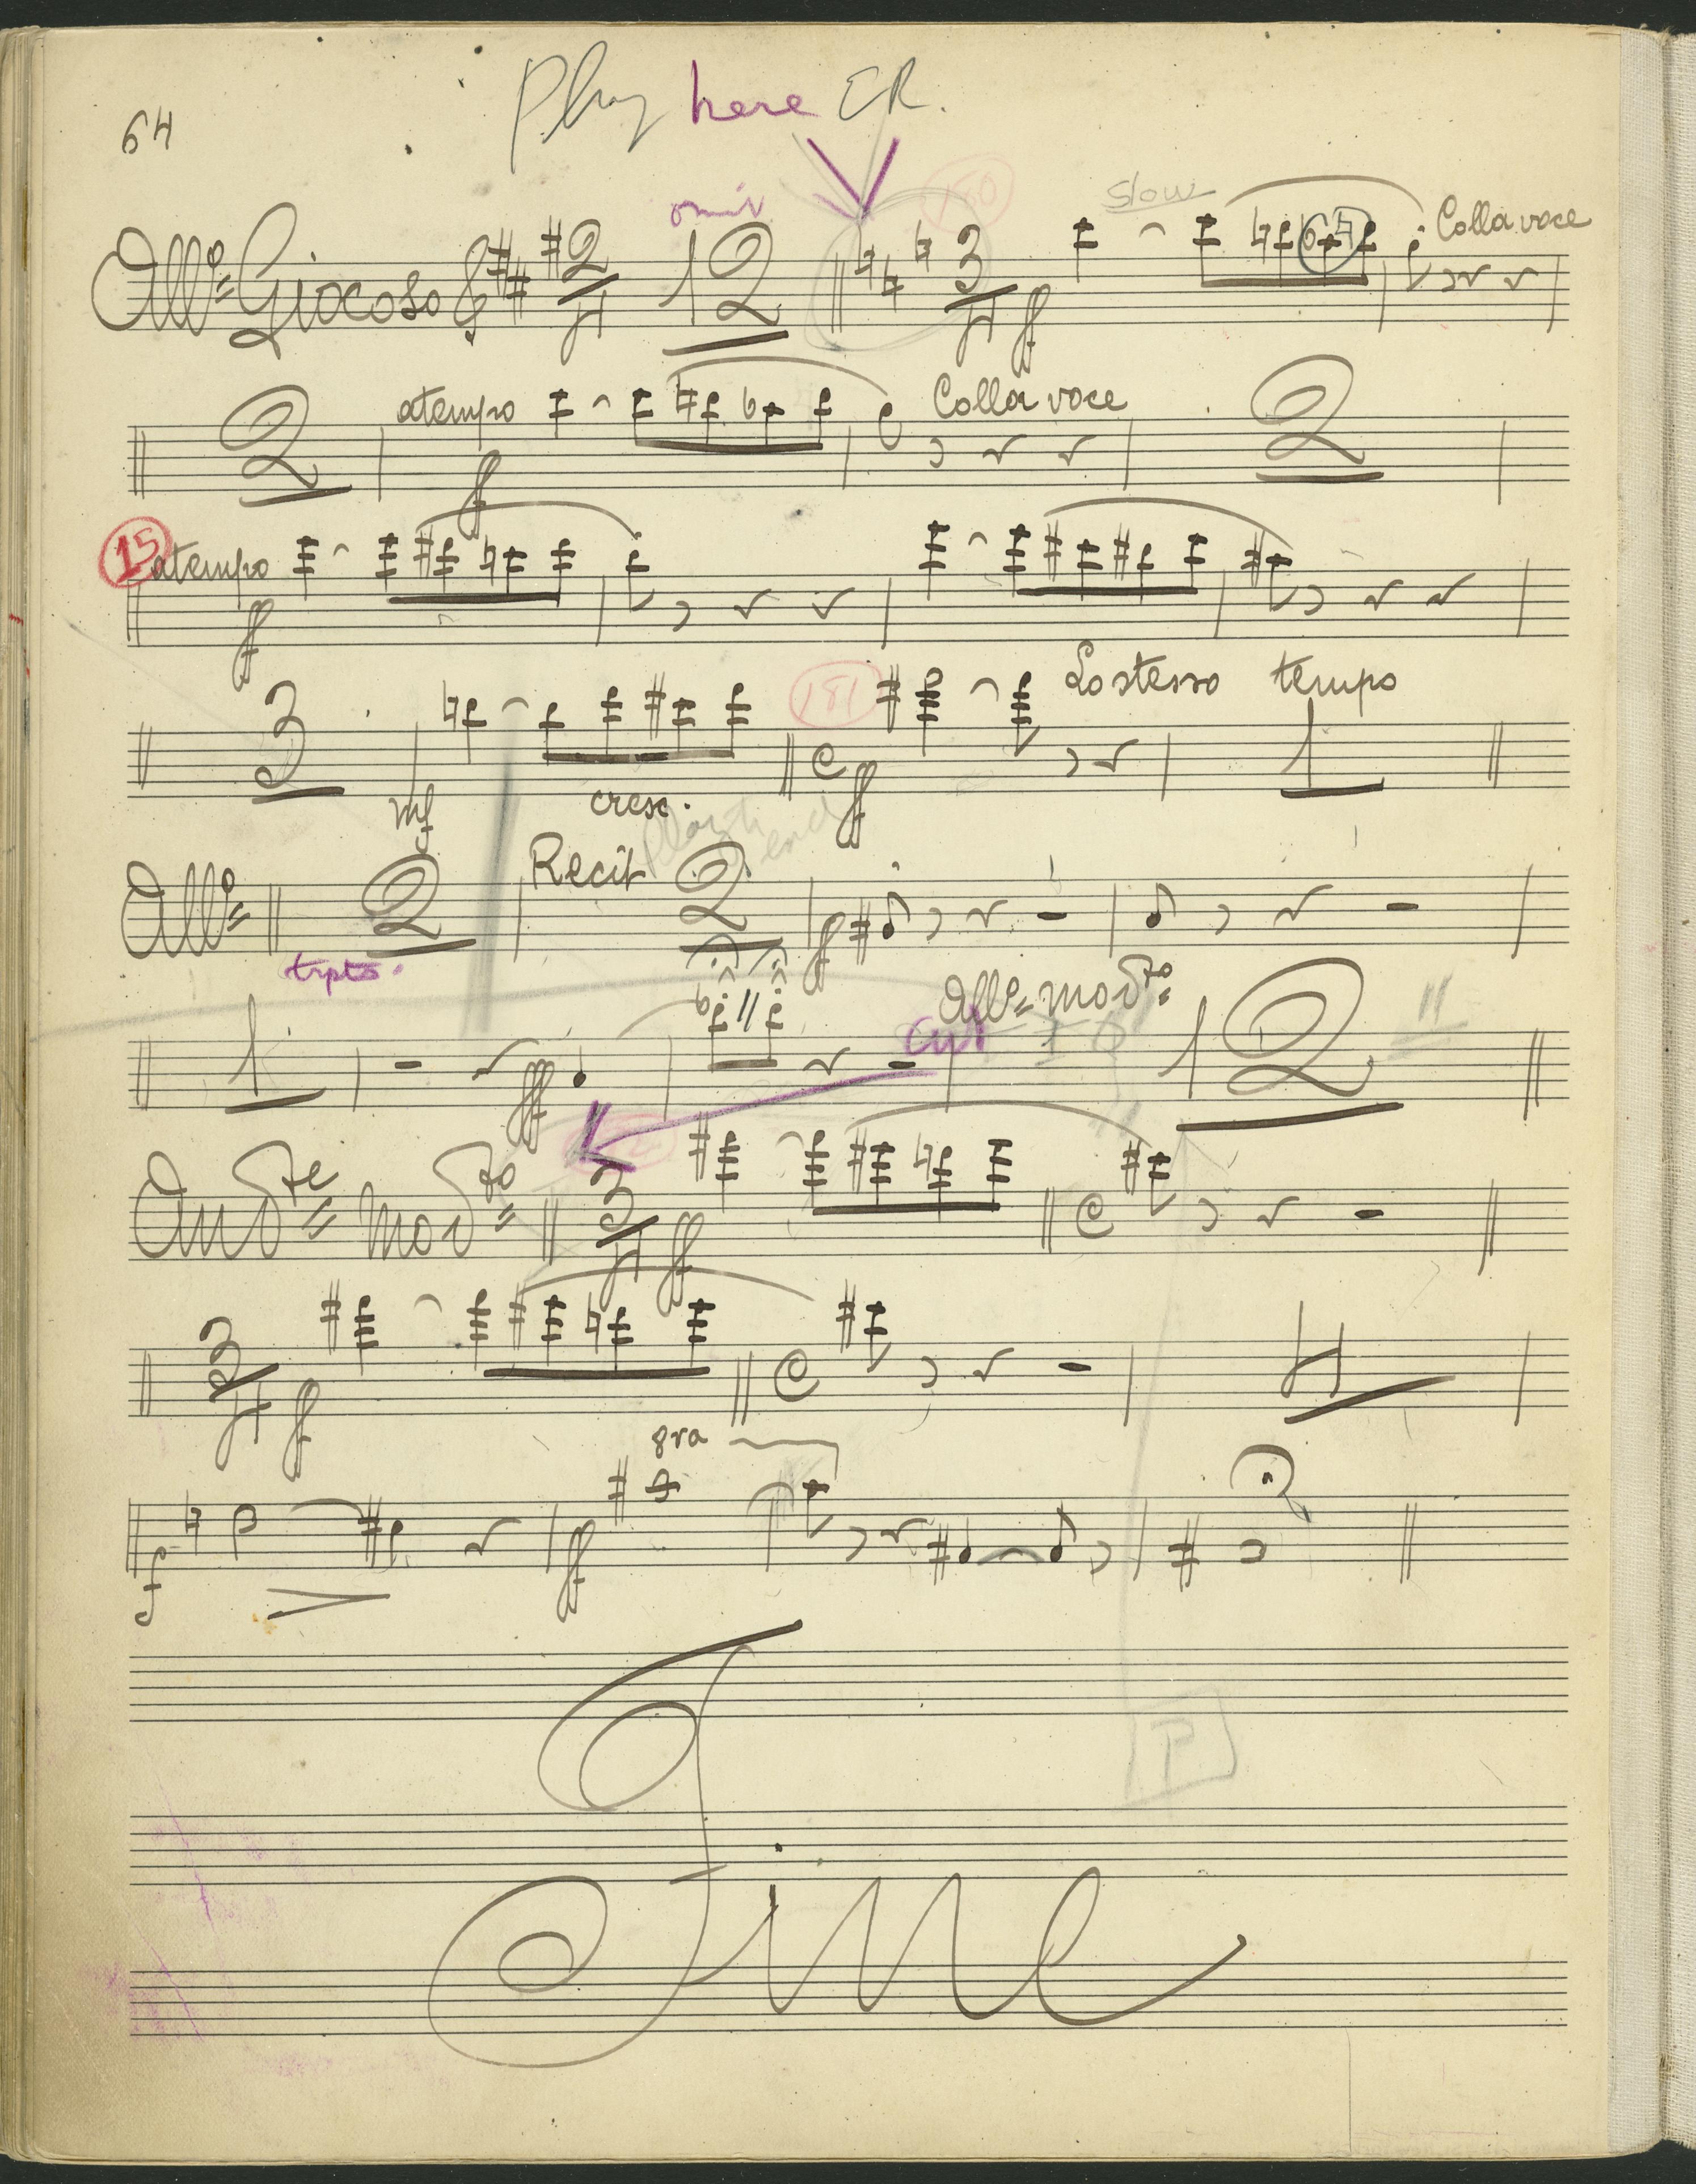 64
Play here ER.
omit
180
slow
All° Giocoso 2/4 12 3/4 ff Colla voce
2 a tempo ff Colla voce 2
15
a tempo ff
3 mf cresc. 181 C ff Lo stesso tempo 1
All° 2 Recit 2 ff
trpts.
1 fff All° modto 12 11
Cut
Andte modto 3/4 ff C
3/4 ff C 4
8va
f ff
P
Fine